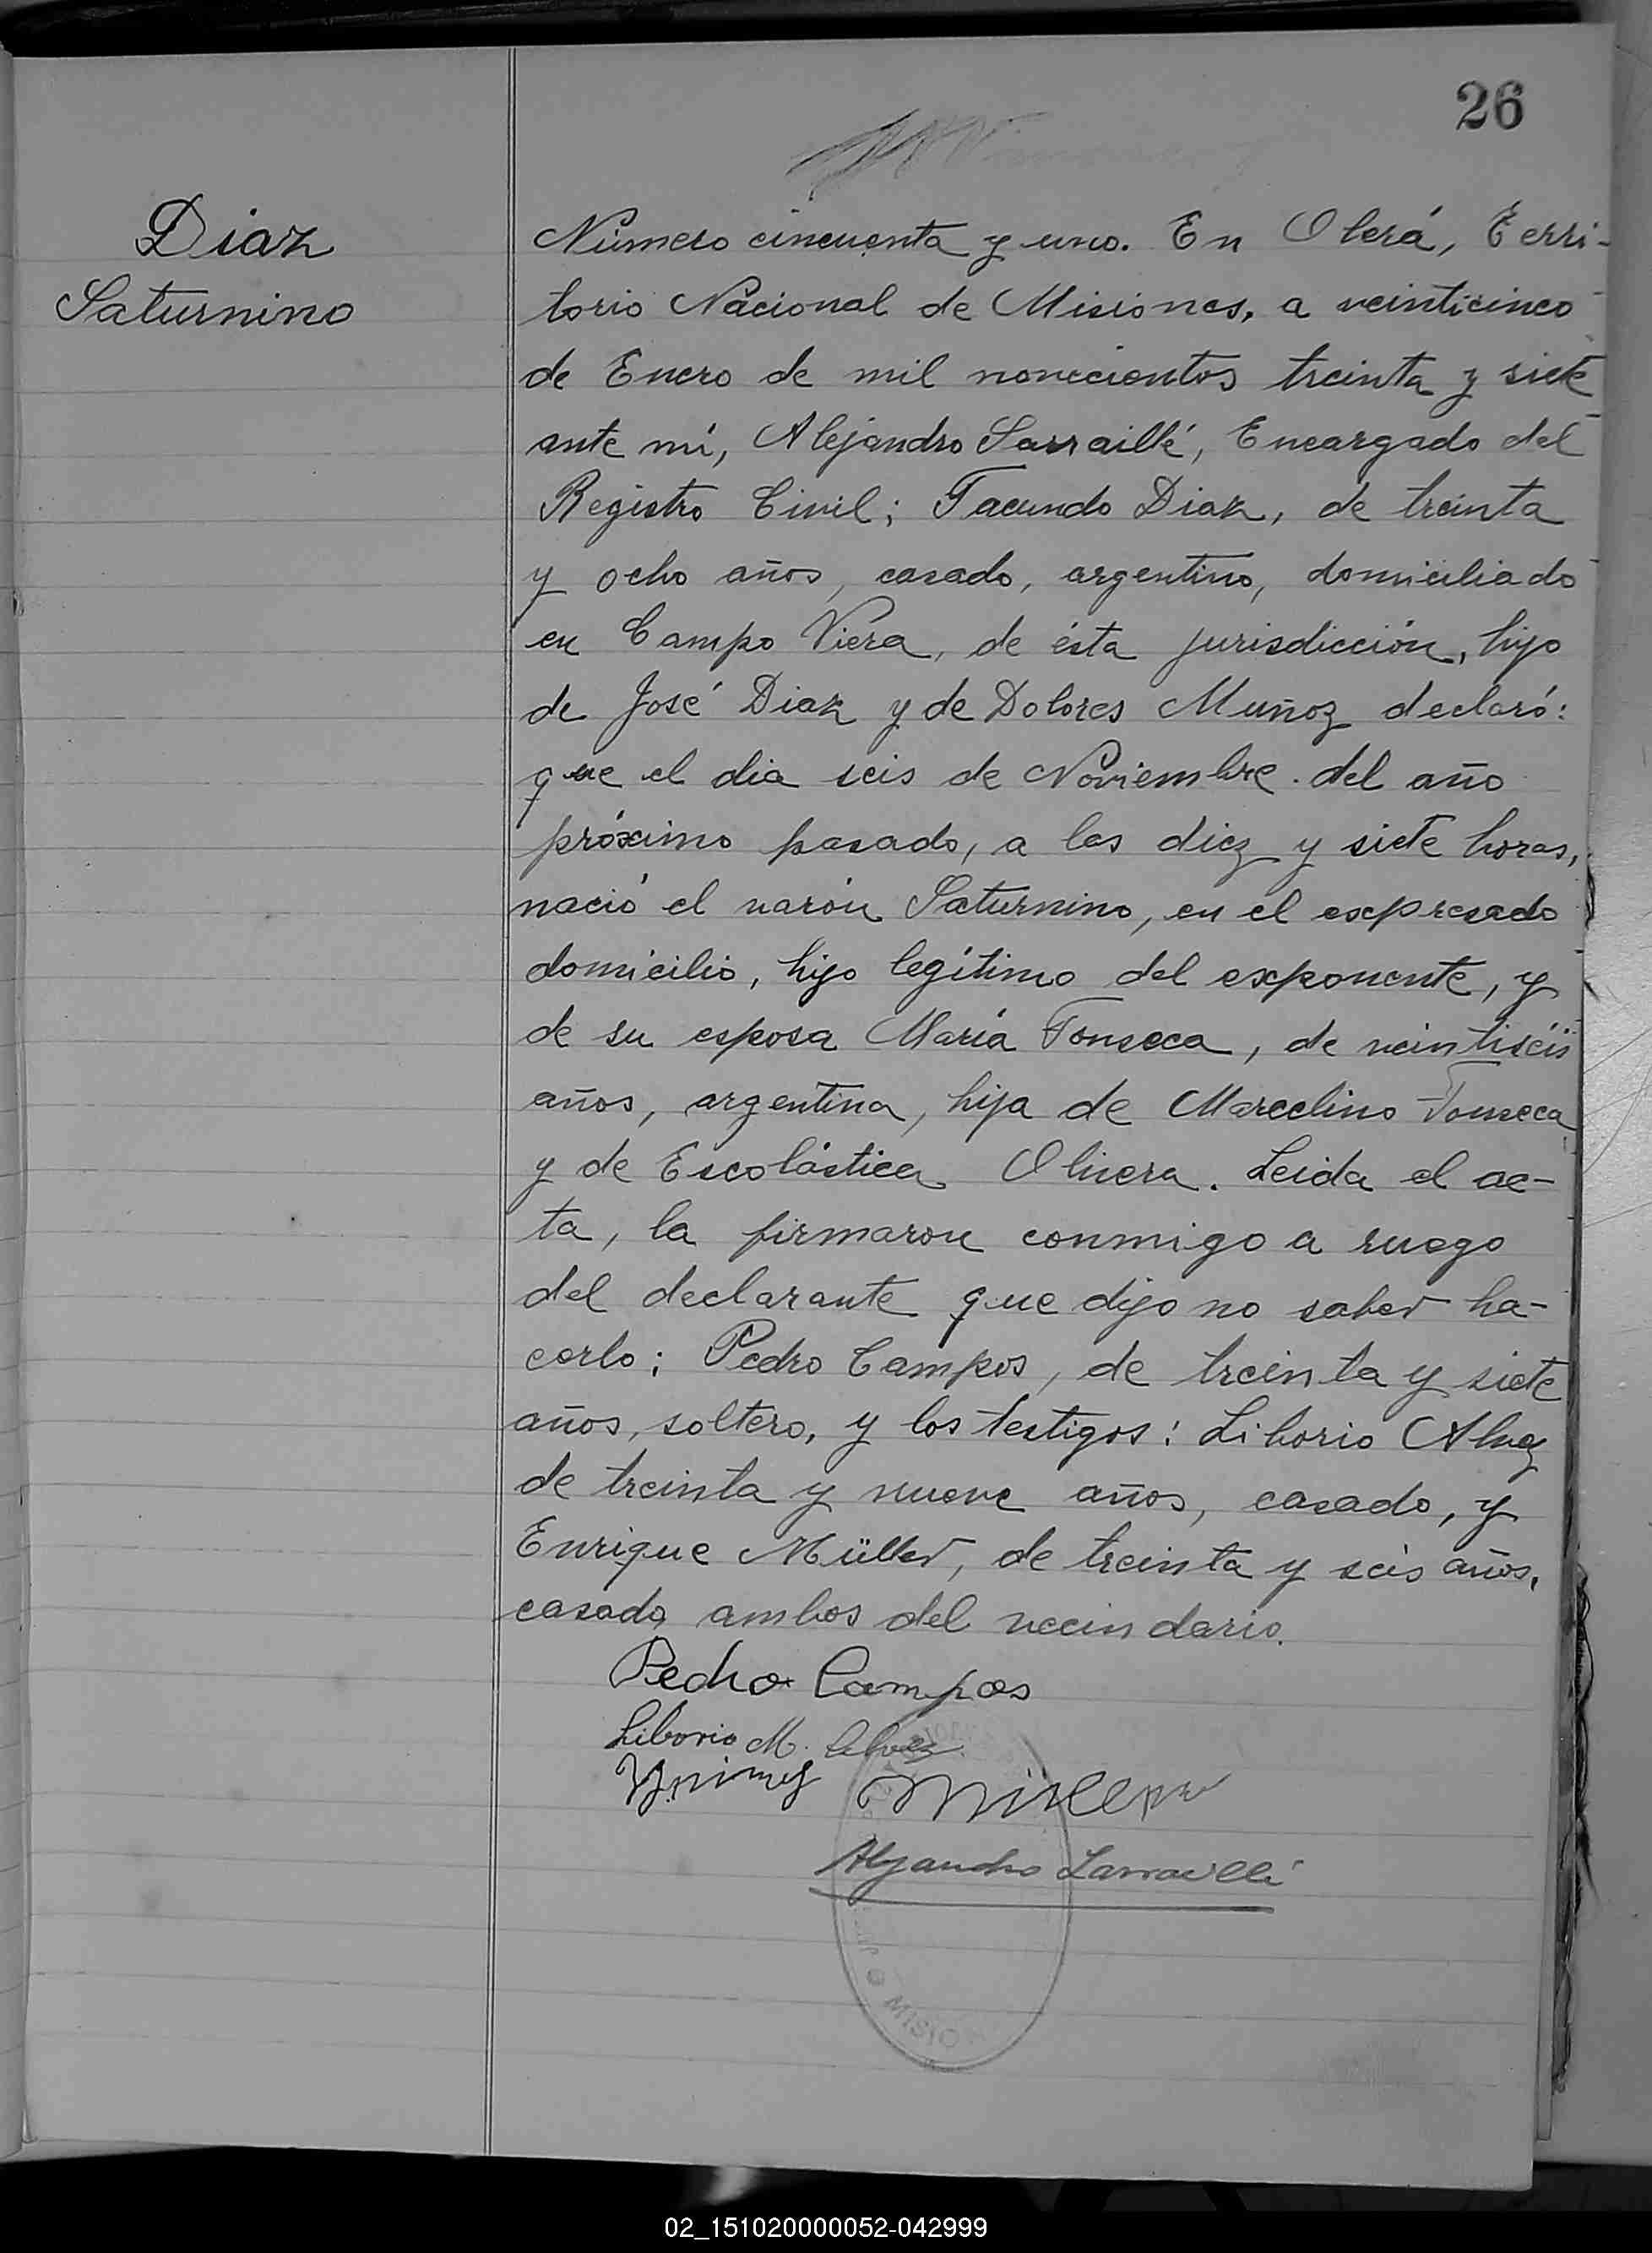 26
Diaz
Saturnino
Número cincuenta y uno. En Oberá, Terri-
torio Nacional de Misiones, a veinticinco
de Enero de mil novecientos treinta y siete
ante mí, Alejandro Larraillé, Encargado del
Registro Civil; Facundo Diaz, de treinta
y ocho años, casado, argentino, domiciliado
en Campo Viera, de ésta jurisdicción, hijo
de José Diaz y de Dolores Muñoz declaró:
que el dia seis de Noviembre del año
próximo pasado, a las diez y siete horas,
nació el varón Saturnino, en el expresado
domicilio, hijo legítimo del exponente, y
de su esposa María Fonseca, de veintiséis
años, argentina, hija de Marcelino Fonseca
y de Escolástica Olivera. Leida el ac-
ta, la firmaron conmigo a ruego
del declarante que dijo no saber ha-
cerlo; Pedro Campos, de treinta y siete
años, soltero, y los testigos: Liborio Alvez
de treinta y nueve años, casado, y
Enrique Müller, de treinta y seis años,
casado, ambos del vecindario.
Pedro Campos
Liborio M. Alvez
Müller
Alejandro Larraillé
MISIO
02_151020000052-042999